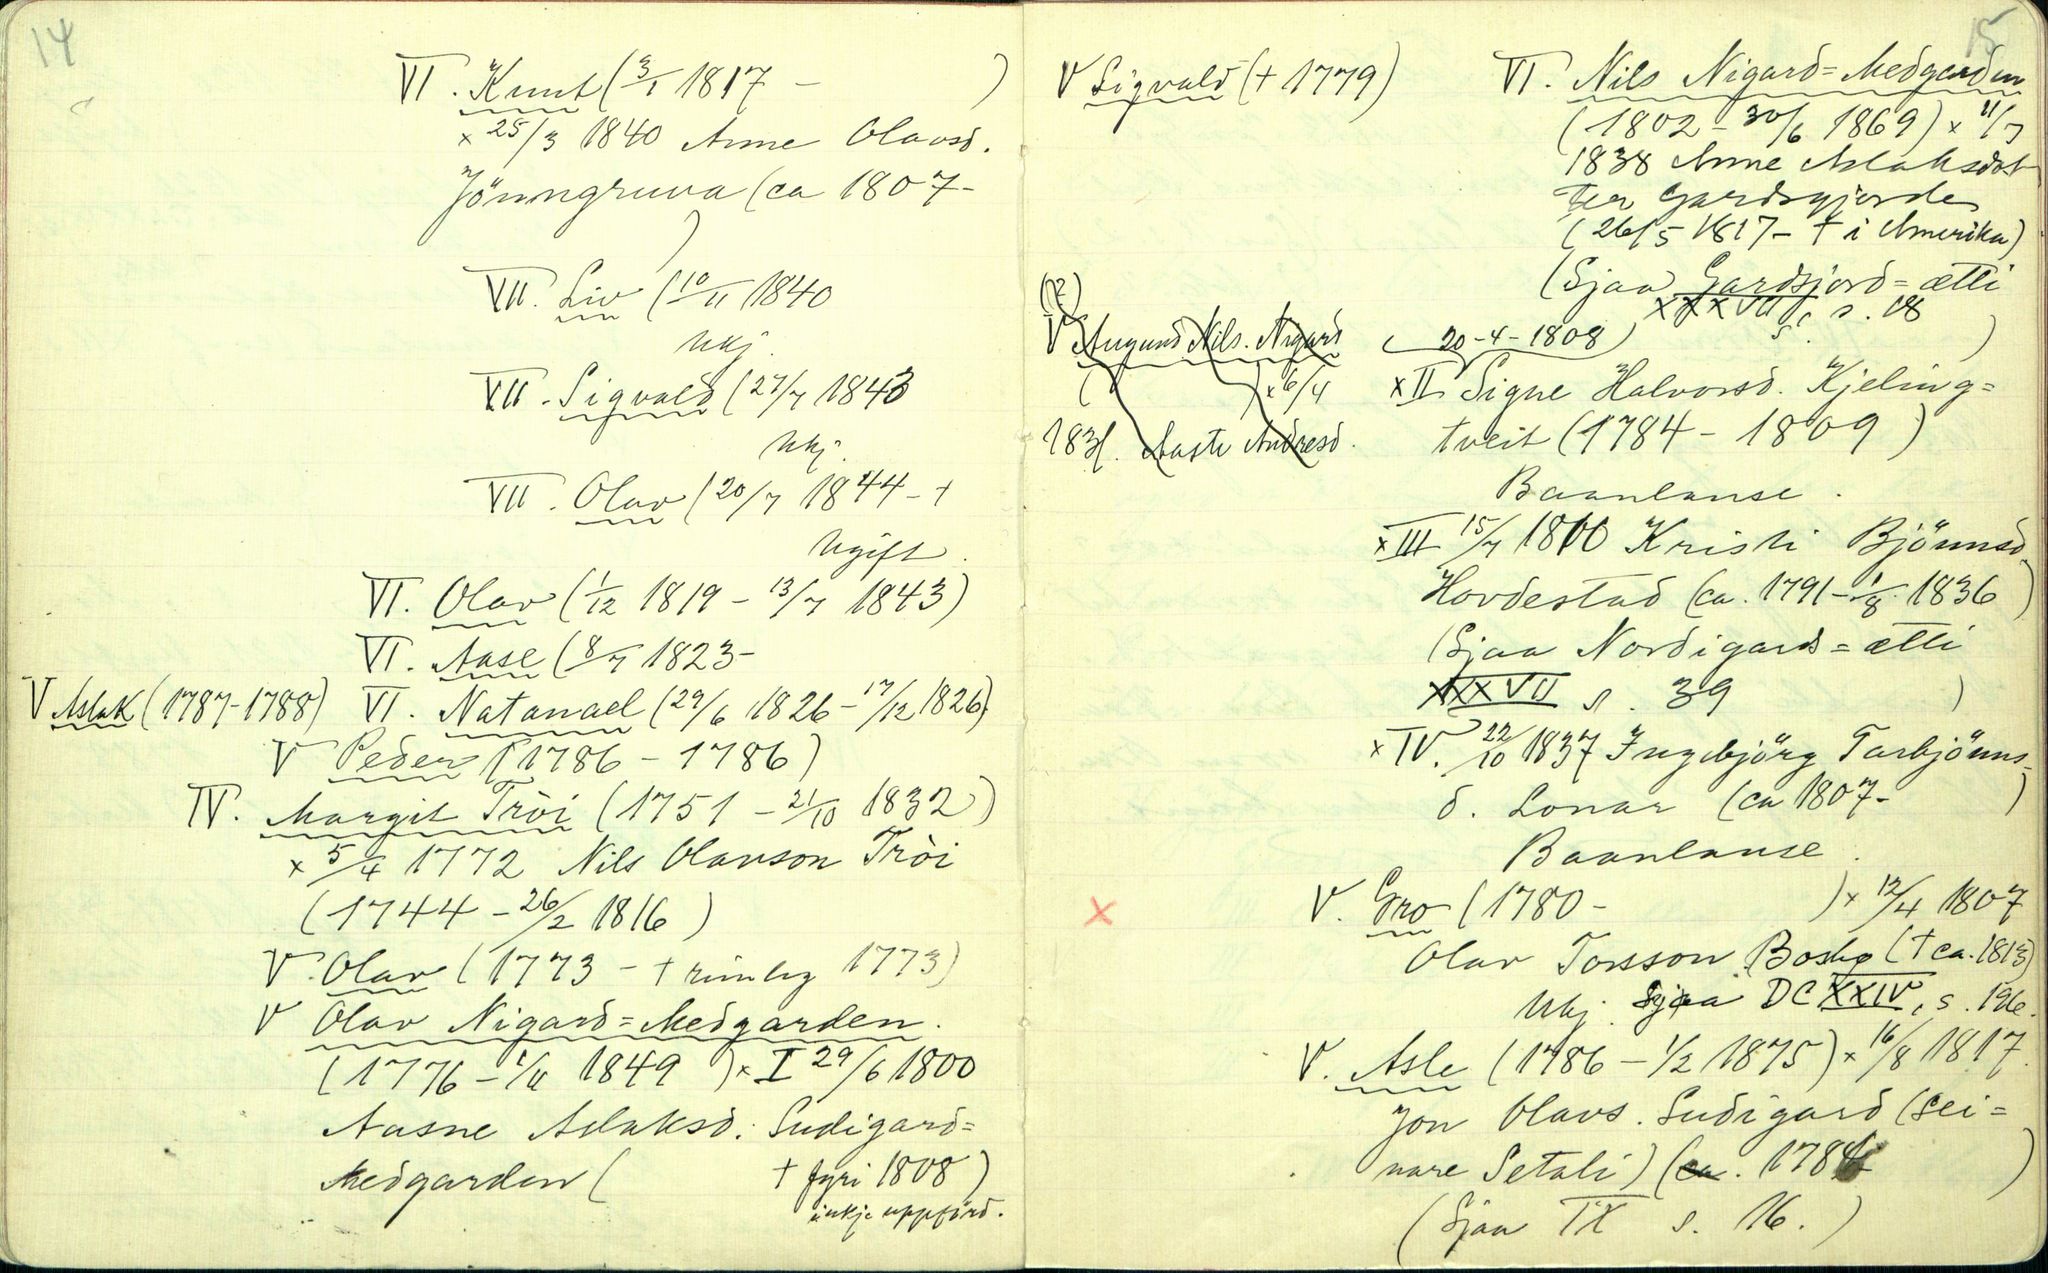 14
VI. Knut (3/1 1817 - )
x 25/3 1840 Anne Olavsd.
Jönngruva (ca 1807-
)
VII. Liv (10/11 1840
Ukj.
VII. Sigvald (27/7 1843
Ukj.
VII. Olav (20/7 1844 - †
Ugift.
VI. Olav (1/12 1819 - 13/7 1843)
VI. Aase (8/7 1823-
V Aslak (1787-1788) VI. Natanael (29/6 1826 - 17/12 1826).
V Peder (1786 - 1786)
IV. Margit Tröi (1751 - 21/10 1832)
x 5/4 1772 Nils Olavson Tröi
(1744 - 26/2 1816)
V. Olav (1773 - † rimleg 1773)
V Olav Nigard=Medgarden.
(1776 - 1/11 1849 ) x I 29/6 1800
Aasne Aslaksd. Sudigard=
Medgarden ( † fyri 1808)
inkje uppförd.
15
V Sigvald († 1779)
VI. Nils Nigard=Medgarden
(1802 - 30/6 1869) x 11/7
1838 Anne Aslaksdot
ter Gardsgjorde
(26/5 1817 - † i Amerika)
(Sjaa Gardsjord=ætti
XXXVII s. 18 )
(?)
V Augund Nils. Nigard
( ) x 6/4
1831. Aaste Andresd.
20-4-1808
x II Signe Halvorsd. Kjeling=
tveit (1784 - 1809 )
Baanlause.
x III 15/7 1810 Kristi Bjönnsd
Hovdestad (ca. 1791 - 1/8 1836)
(Sjaa Nordigards=ætti
XXXVII s. 39 )
x IV. 22/10 1837 Ingebjörg Tarbjönns-
d. Lonar (ca 1807- )
Baanlause.
V. Gro (1780 - ) x 12/4 1807
x
Olav Torsson Bosbø († ca. 1813)
Ukj. Sjaa DC XXIV, s. 126.
V. Asle (1786 - 1/2 1875) x 16/8 1817.
Jon Olavs. Sudigard (sei=
nare Setali) (ca. 1784 )
(Sjaa IX s. 16. )